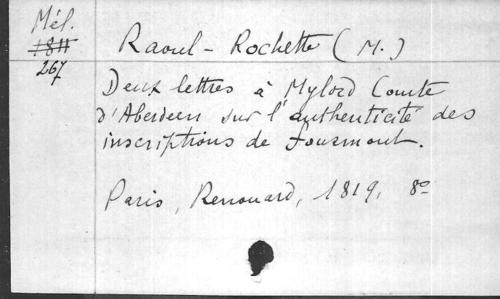 Mél.
1811
267
Raoul-Rochette (M.)
Deux lettres à Mylord Comte
d'Aberdeen sur l'authenticité des
inscriptions de Fourmont.
Paris, Renouard, 1819, 8º